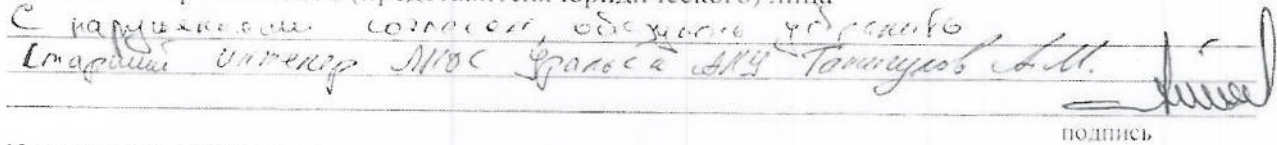 (представителя юридического) лица
С нарушениями согласен, обязуюсь устранить
Старший инженер Уральск Танигулов А.М.
подпись